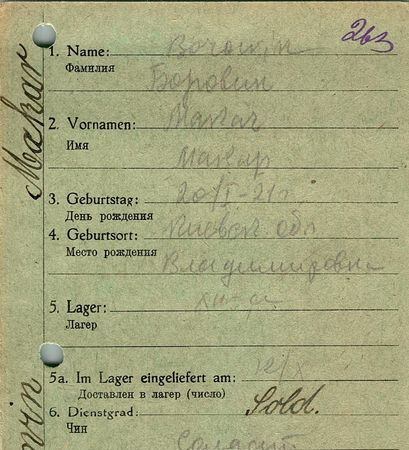 263
1. Name: Borowin
Фамилия
Боровин
2. Vornamen: Makar
Имя
Макар
3. Geburtstag: 20/I-21г
День рождения
4. Geburtsort: Киевск обл
Место рождения
Владимировка
5. Lager:
Лагер
5a. Im Lager eingeliefert am: 12/X
Доставлен в лагер (число)
6. Dienstgrad: Sold.
Чин
Солдат
Makar